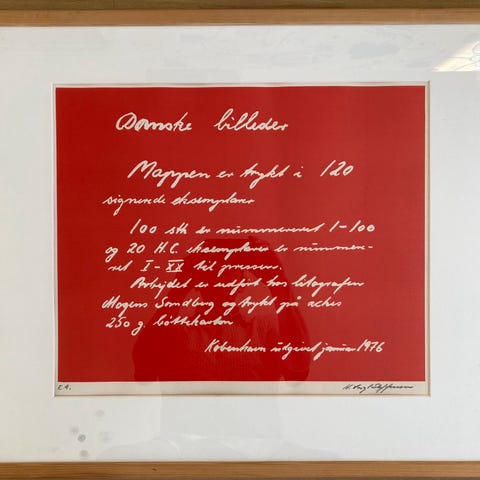 Danske billeder
Mappen er trykt i 120
signerede eksemplarer
100 stk er nummereret 1-100
og 20 H.C. eksemplarer er nummere-
ret I-XX til pressen.
Arbejdet er udført hos litografen
Mogens Sandberg og trykt på arches
250 g. bøttekarton
København udgivet januar 1976
E.A.